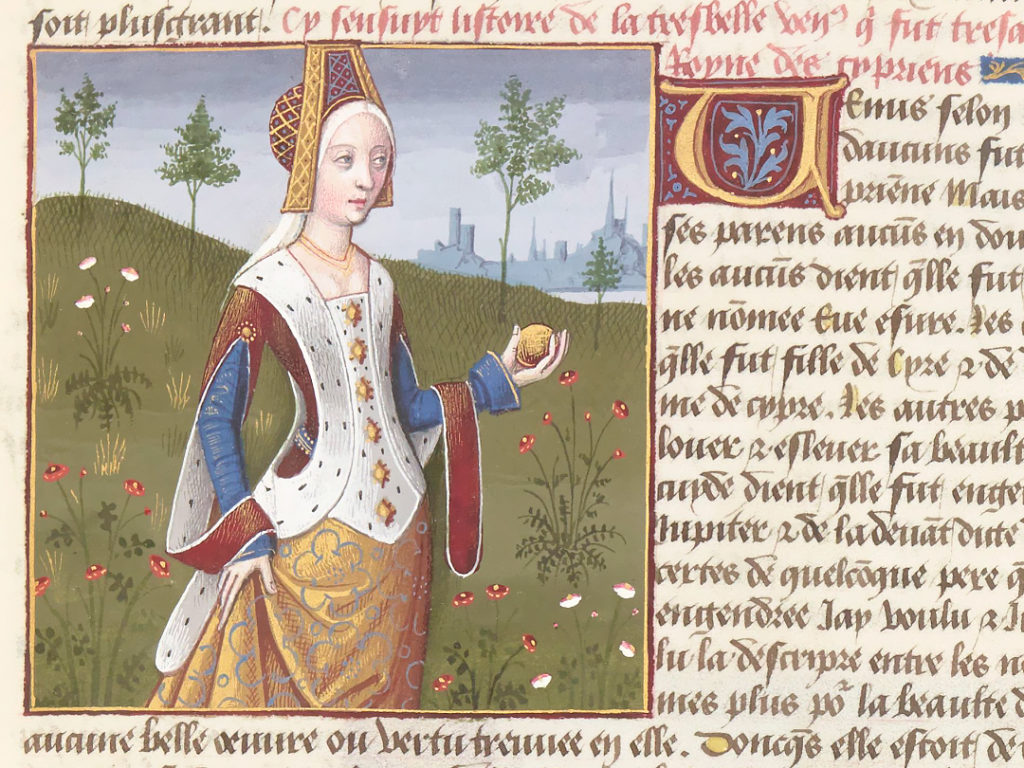 soit plus grant. Cy sensuyt listoire de la tresbelle venꝰ q̄ fut tresa
Royne des cypriens
Venus selon
daucuns fut
priēne Mais
ses parens aucūs en dou
les aucūs dient q̄lle fut
ne nōmee
q̄lle fut fille de Cyre ⁊ de
me de cypre. Les autres p
louer ⁊ esleuer sa beault
cuyde dient q̄lle fut enge
Iupiter ⁊ de la deuāt dicte
certes de quelcōque pere q̄
engendree Jay voulu ⁊
lu la descripre entre les no
mes plus po᷑ la beaulte d
aucune belle oeuure ou vertu trouuee en elle. Doncq̄s elle estoit de